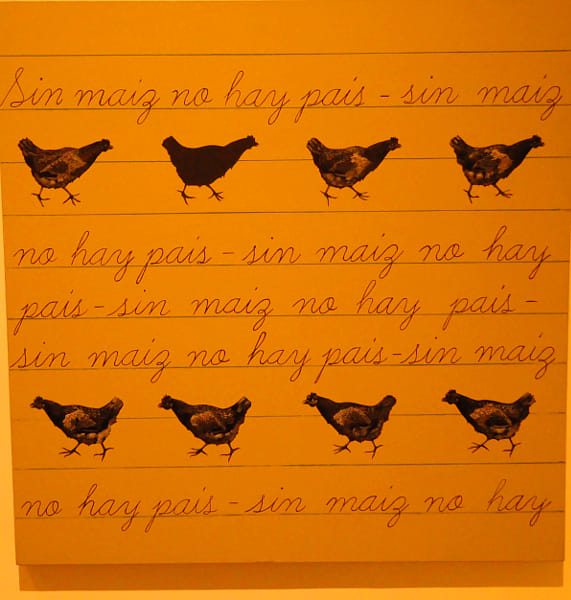 Sin maiz no hay pais - sin maiz
no hay pais - sin maiz no hay
pais - sin maiz no hay pais -
sin maiz no hay pais - sin maiz
no hay pais - sin maiz no hay